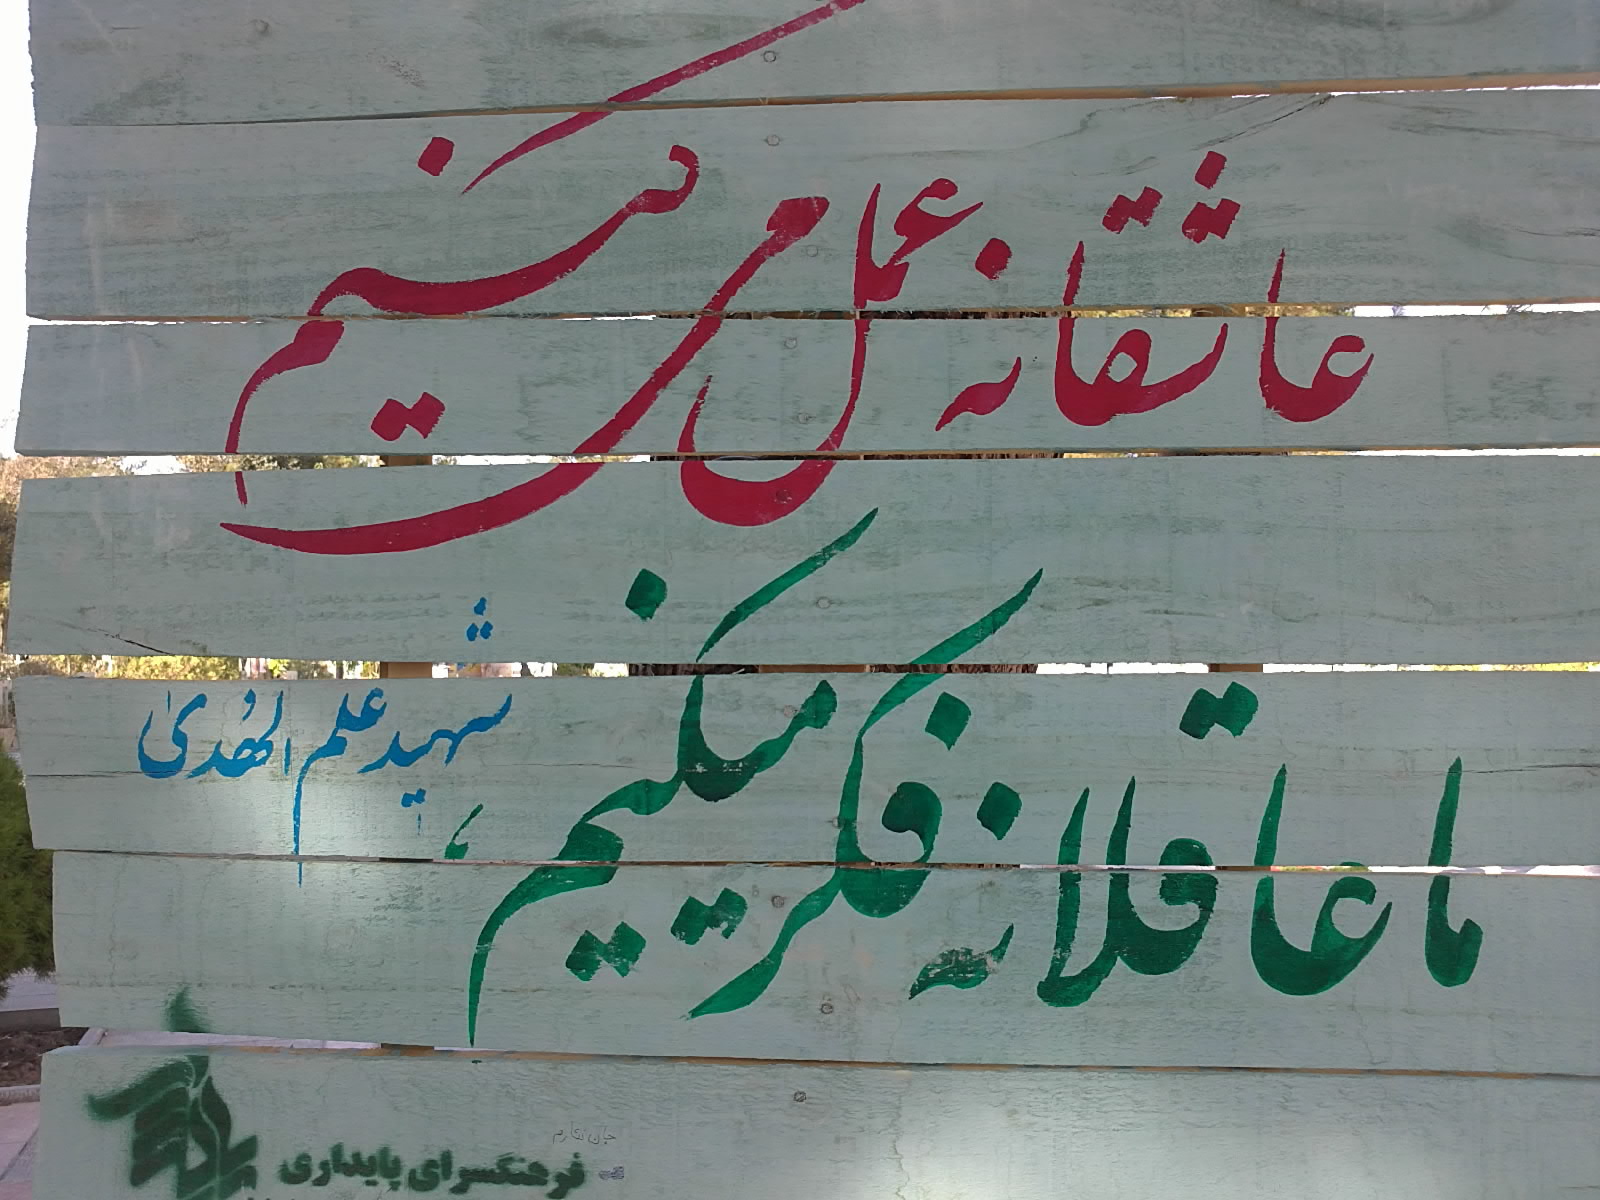 عاشقانه عمل می کنیم
ما عاقلانه فکر میکنیم،
شهید علم الهُدیٰ
جان نثارم
فرهنگسرای پایداری